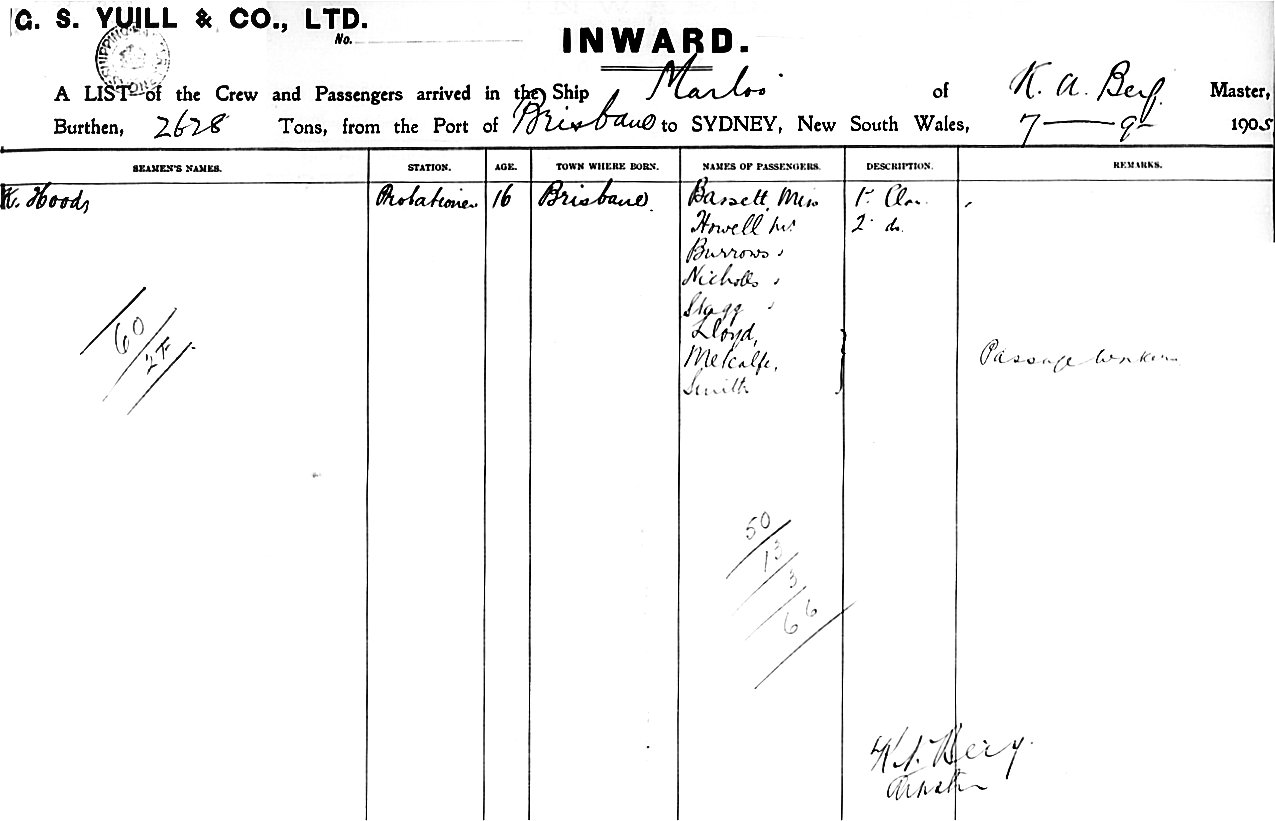 G. S. YUILL & CO., LTD.
No.
INWARD.
A LIST of the Crew and Passengers arrived in the Ship Marloo of K. A. Berg. Master,
Burthen, 2628 Tons, from the Port of Brisbane to SYDNEY, New South Wales, 7 — 9 1905
SEAMEN'S NAMES. STATION. AGE. TOWN WHERE BORN. NAMES OF PASSENGERS. DESCRIPTION. REMARKS.
K. Hoods Probationer 16 Brisbane. Bassett, Miss 1. Clas.
Howell Mr 2 do.
Burrows "
Nicholls "
Stagg "
Lloyd,
Metcalfe, Passage workers
Smith
60
2
50
13
3
66
K. A. Berg.
Master